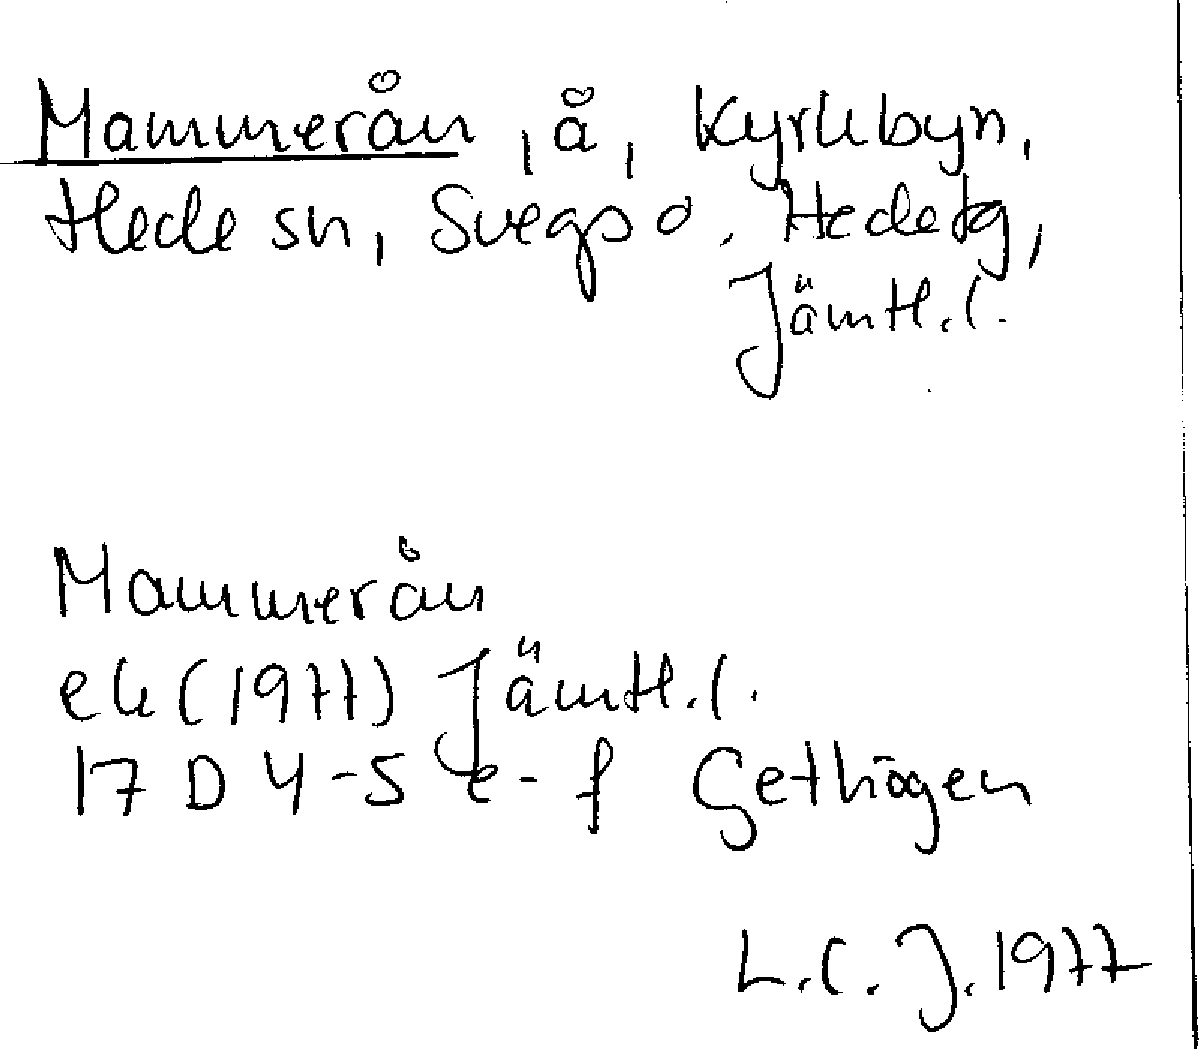 Mammerån, å, Kyrkbyn,
Hede sn, Svegs o. Hede tg,
Jämtl. l.
Mammerån
ek (1977) Jämtl. l.
17 D 4-5 e-f Gethögen
L.C. J. 1977